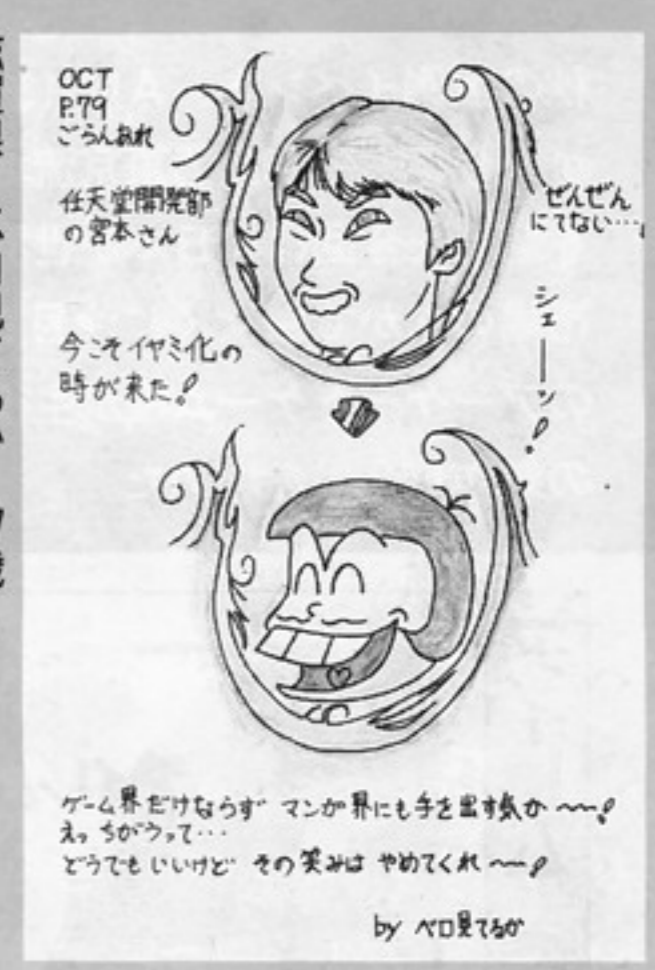 OCT
P.79
ごらんあれ
任天堂開発部
の宮本さん
ぜんぜん
にてない…
シェーン!
今こそイヤミ化の
時が来た!
ゲーム界だけならず マンガ界にも手を出す気か〜〜!
えっ ちがうって…
どうでもいいけど その笑みは やめてくれ〜〜!
by ベロ見てるか